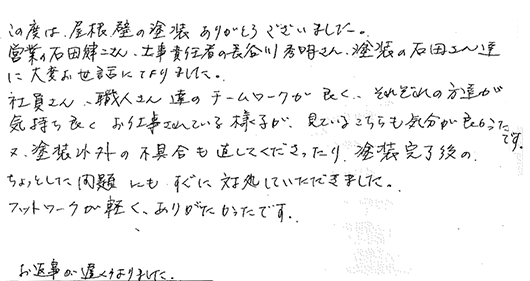 この度は、屋根壁の塗装 ありがとうございました。
営業の石田健二さん、工事責任者の長谷川秀明さん、塗装の石田さん達
に大変お世話になりました。
社員さん、職人さん達のチームワークが良く、それぞれの方達が
気持ち良くお仕事されている様子が、見ているこちらも気分が良かったです。
又、塗装以外の不具合も直してくださったり、塗装完了後の
ちょっとした問題にもすぐに対処していただきました。
フットワークが軽く、ありがたかったです。
お返事が遅くなりました。